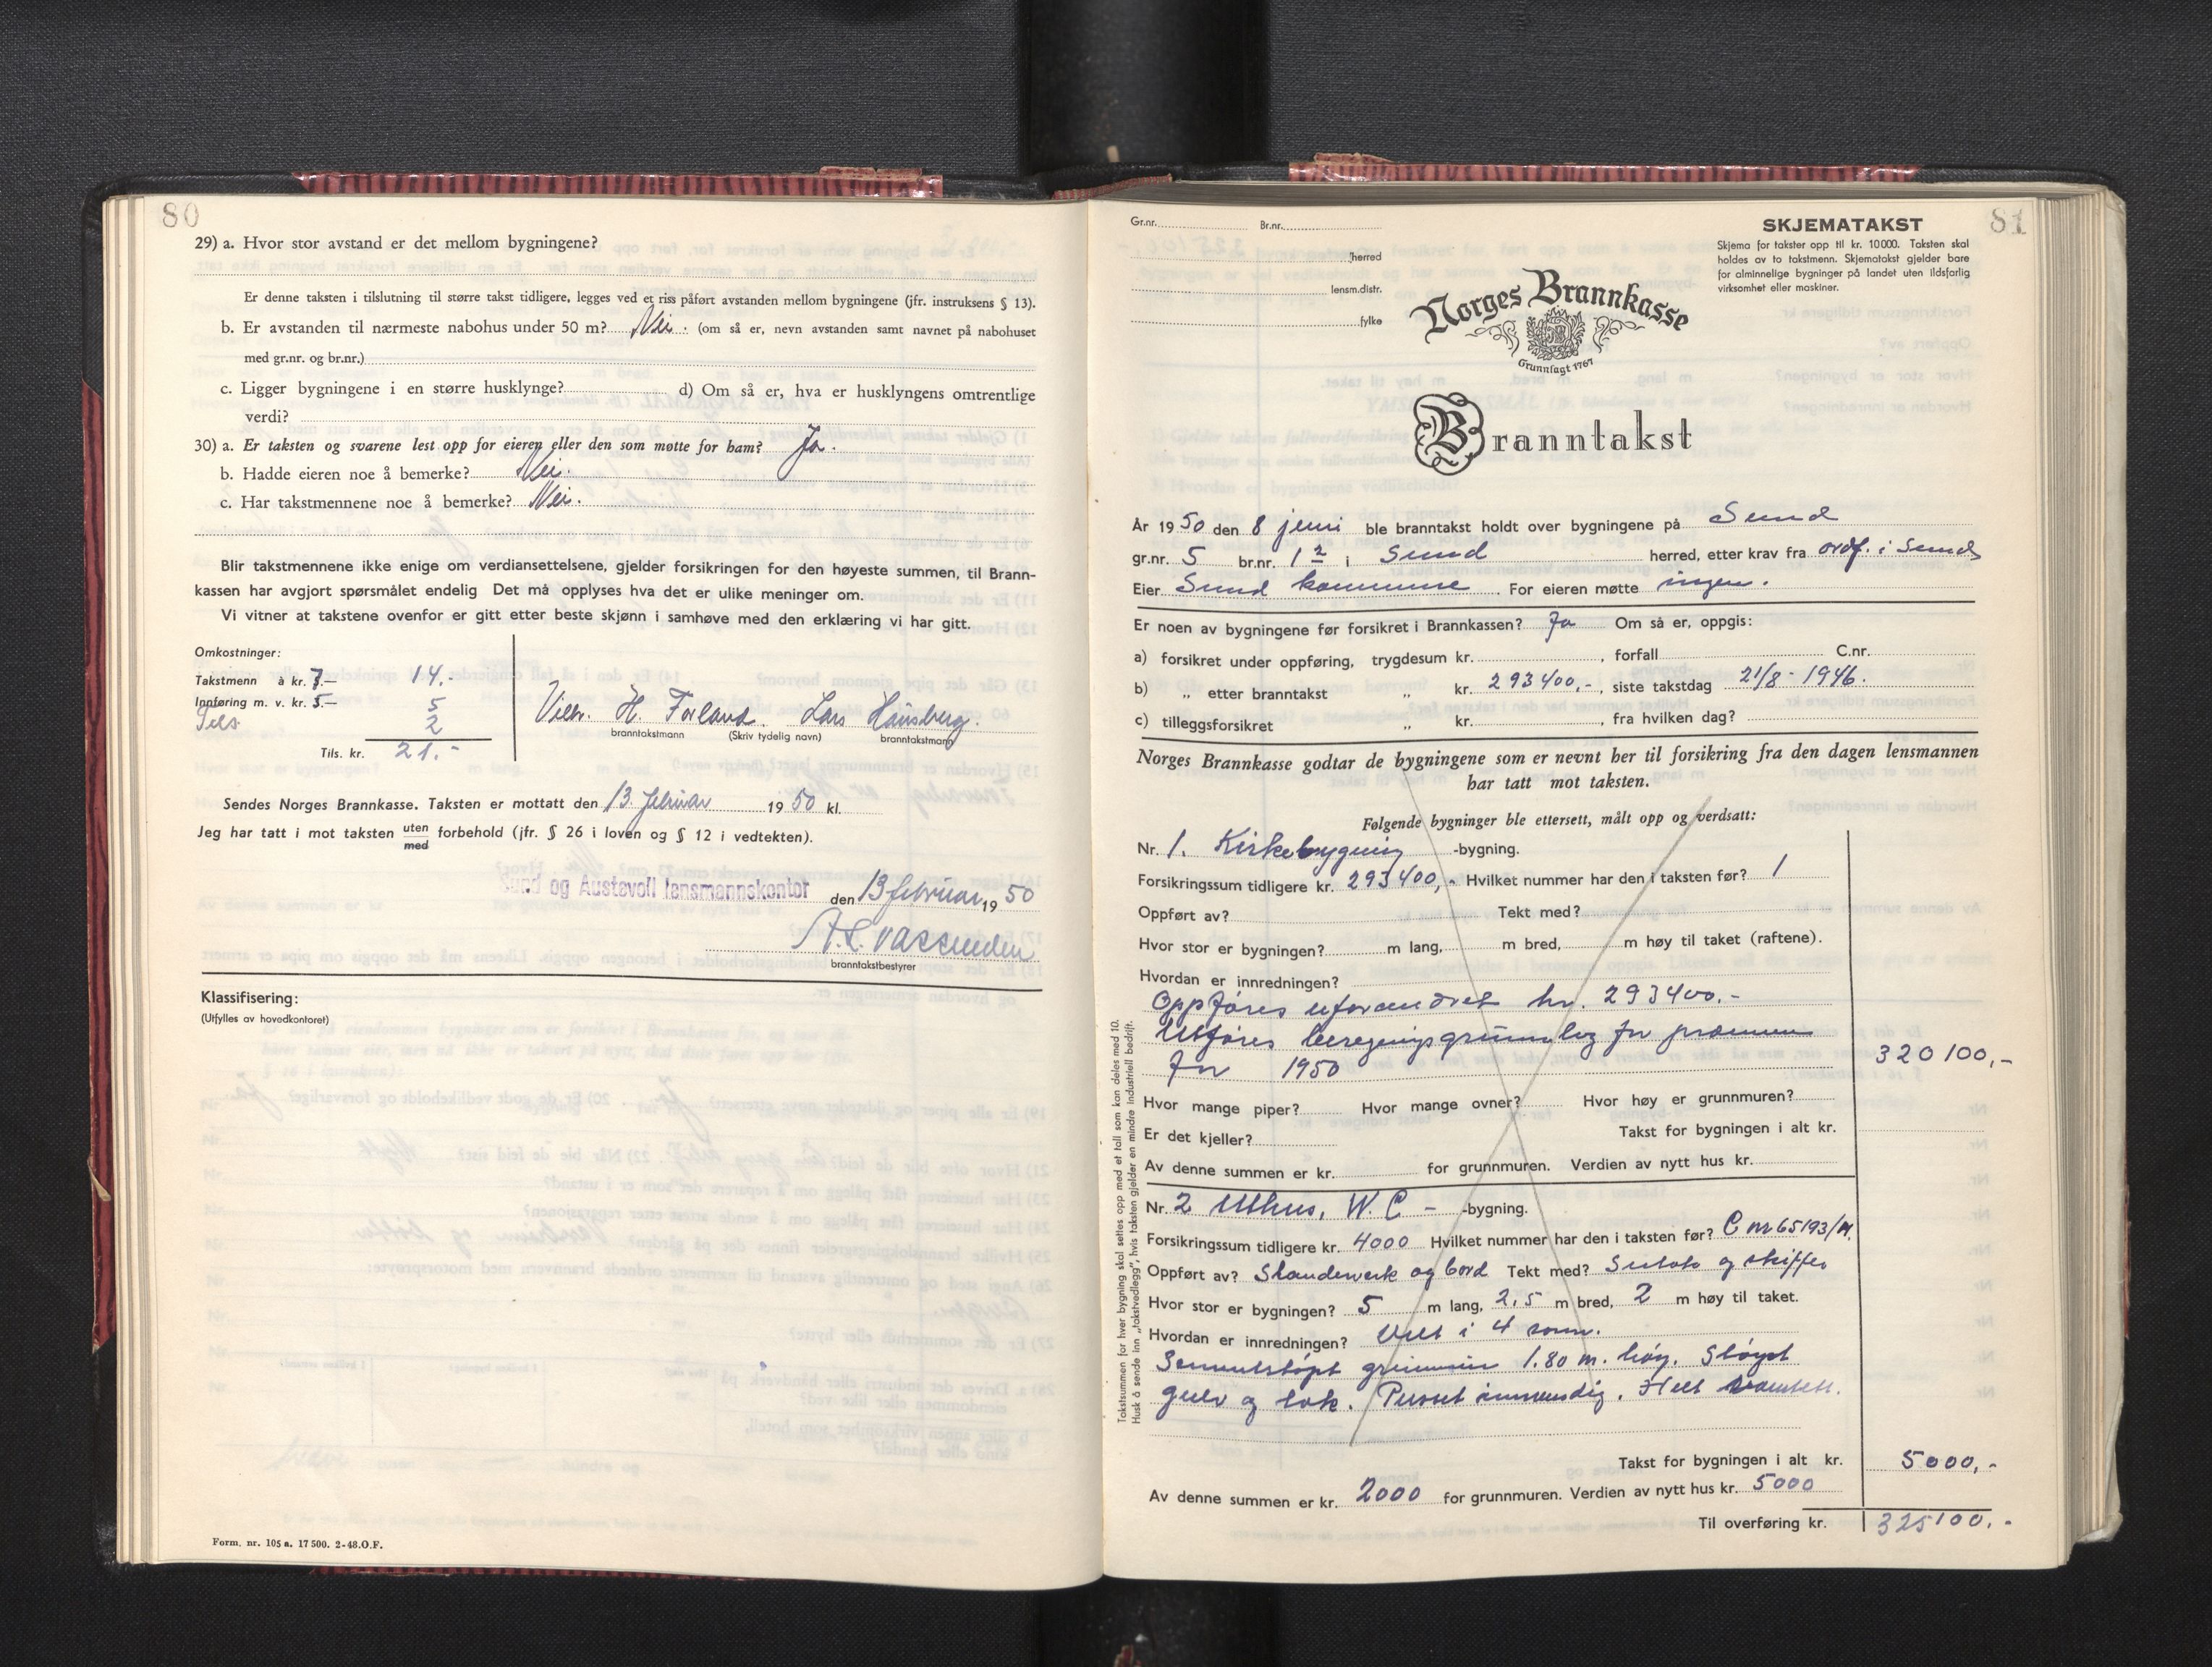 80
29) a. Hvor stor avstand er det mellom bygningene?
Er denne taksten i tilslutning til større takst tidligere, legges ved et riss påført avstanden mellom bygningene (jfr. instruksens § 13).
b. Er avstanden til nærmeste nabohus under 50 m? Nei. (om så er, nevn avstanden samt navnet på nabohuset
med gr.nr. og br.nr.)
c. Ligger bygningene i en større husklynge? d) Om så er, hva er husklyngens omtrentlige
verdi?
30) a. Er taksten og svarene lest opp for eieren eller den som møtte for ham? Ja.
b. Hadde eieren noe å bemerke? Nei.
c. Har takstmennene noe å bemerke? Nei.
Blir takstmennene ikke enige om verdiansettelsene, gjelder forsikringen for den høyeste summen, til Brann-
kassen har avgjort spørsmålet endelig Det må opplyses hva det er ulike meninger om.
Vi vitner at takstene ovenfor er gitt etter beste skjønn i samhøve med den erklæring vi har gitt.
Omkostninger:
Takstmenn à kr. 7.— 14.-
Innføring m. v. kr. 5.— 5
Sels 2
Tils. kr. 21.-
Vilh. H. Forland. Lars Hausberg.
branntakstmann (Skriv tydelig navn) branntakstmann
Sendes Norges Brannkasse. Taksten er mottatt den 13. februar 1950 kl.
Jeg har tatt i mot taksten uten forbehold (jfr. § 26 i loven og § 12 i vedtekten).
med
Sund og Austevoll lensmannskontor den 13 februar 1950
A.L. Vassenden
branntakstbestyrer
Klassifisering:
(Utfylles av hovedkontoret)
Form. nr. 105 a. 17 500. 2-48. O.F.
81
Gr.nr. Br.nr.
herred
lensm.distr.
fylke
SKJEMATAKST
Skjema for takster opp til kr. 10000. Taksten skal
holdes av to takstmenn. Skjematakst gjelder bare
for alminnelige bygninger på landet uten ildsfarlig
virksomhet eller maskiner.
Norges Brannkasse
Grunnlagt 1767
Branntakst
År 1950 den 8 juni ble branntakst holdt over bygningene på Sund
gr.nr. 5 br.nr. 12 i Sund herred, etter krav fra ordf. i Sund
Eier Sund kommune. For eieren møtte ingen.
Er noen av bygningene før forsikret i Brannkassen? Ja Om så er, oppgis:
a) forsikret under oppføring, trygdesum kr. , forfall C.nr.
b) „ etter branntakst „ kr. 293400,-, siste takstdag 21/8 - 1946.
c) tilleggsforsikret „ kr. , fra hvilken dag?
Norges Brannkasse godtar de bygningene som er nevnt her til forsikring fra den dagen lensmannen
har tatt mot taksten.
Følgende bygninger ble ettersett, målt opp og verdsatt:
Nr. 1. Kirkebygning -bygning.
Forsikringssum tidligere kr. 293400,- Hvilket nummer har den i taksten før? 1
Oppført av? Tekt med?
Hvor stor er bygningen? m lang, m bred, m høy til taket (raftene).
Hvordan er innredningen?
Oppføres uforandret kr. 293400.-
Utføres beregningsgrunnlag for præmien
for 1950 320100,-
Hvor mange piper? Hvor mange ovner? Hvor høy er grunnmuren?
Er det kjeller? Takst for bygningen i alt kr.
Av denne summen er kr. for grunnmuren. Verdien av nytt hus kr.
Nr. 2 Uthus, W. C - -bygning.
Forsikringssum tidligere kr. 4000 Hvilket nummer har den i taksten før? C nr 65193/M.
Oppført av? Standerverk og bord Tekt med? Sutak og skiffer
Hvor stor er bygningen? 5 m lang, 2,5 m bred, 2 m høy til taket.
Hvordan er innredningen? Delt i 4 rom.
Sementstøpt grunnmur 1.80 m. høg. Støypt
gulv og tak. Pusset innvendig. Helt
Takst for bygningen i alt kr. 5000,-
Av denne summen er kr. 2000 for grunnmuren. Verdien av nytt hus kr. 5000
Til overføring kr. 325100.-
Takstsummen for hver bygning skal settes opp med et tall som kan deles med 10.
Husk å sende inn „takstvedlegg", hvis taksten gjelder en mindre industriell bedrift.